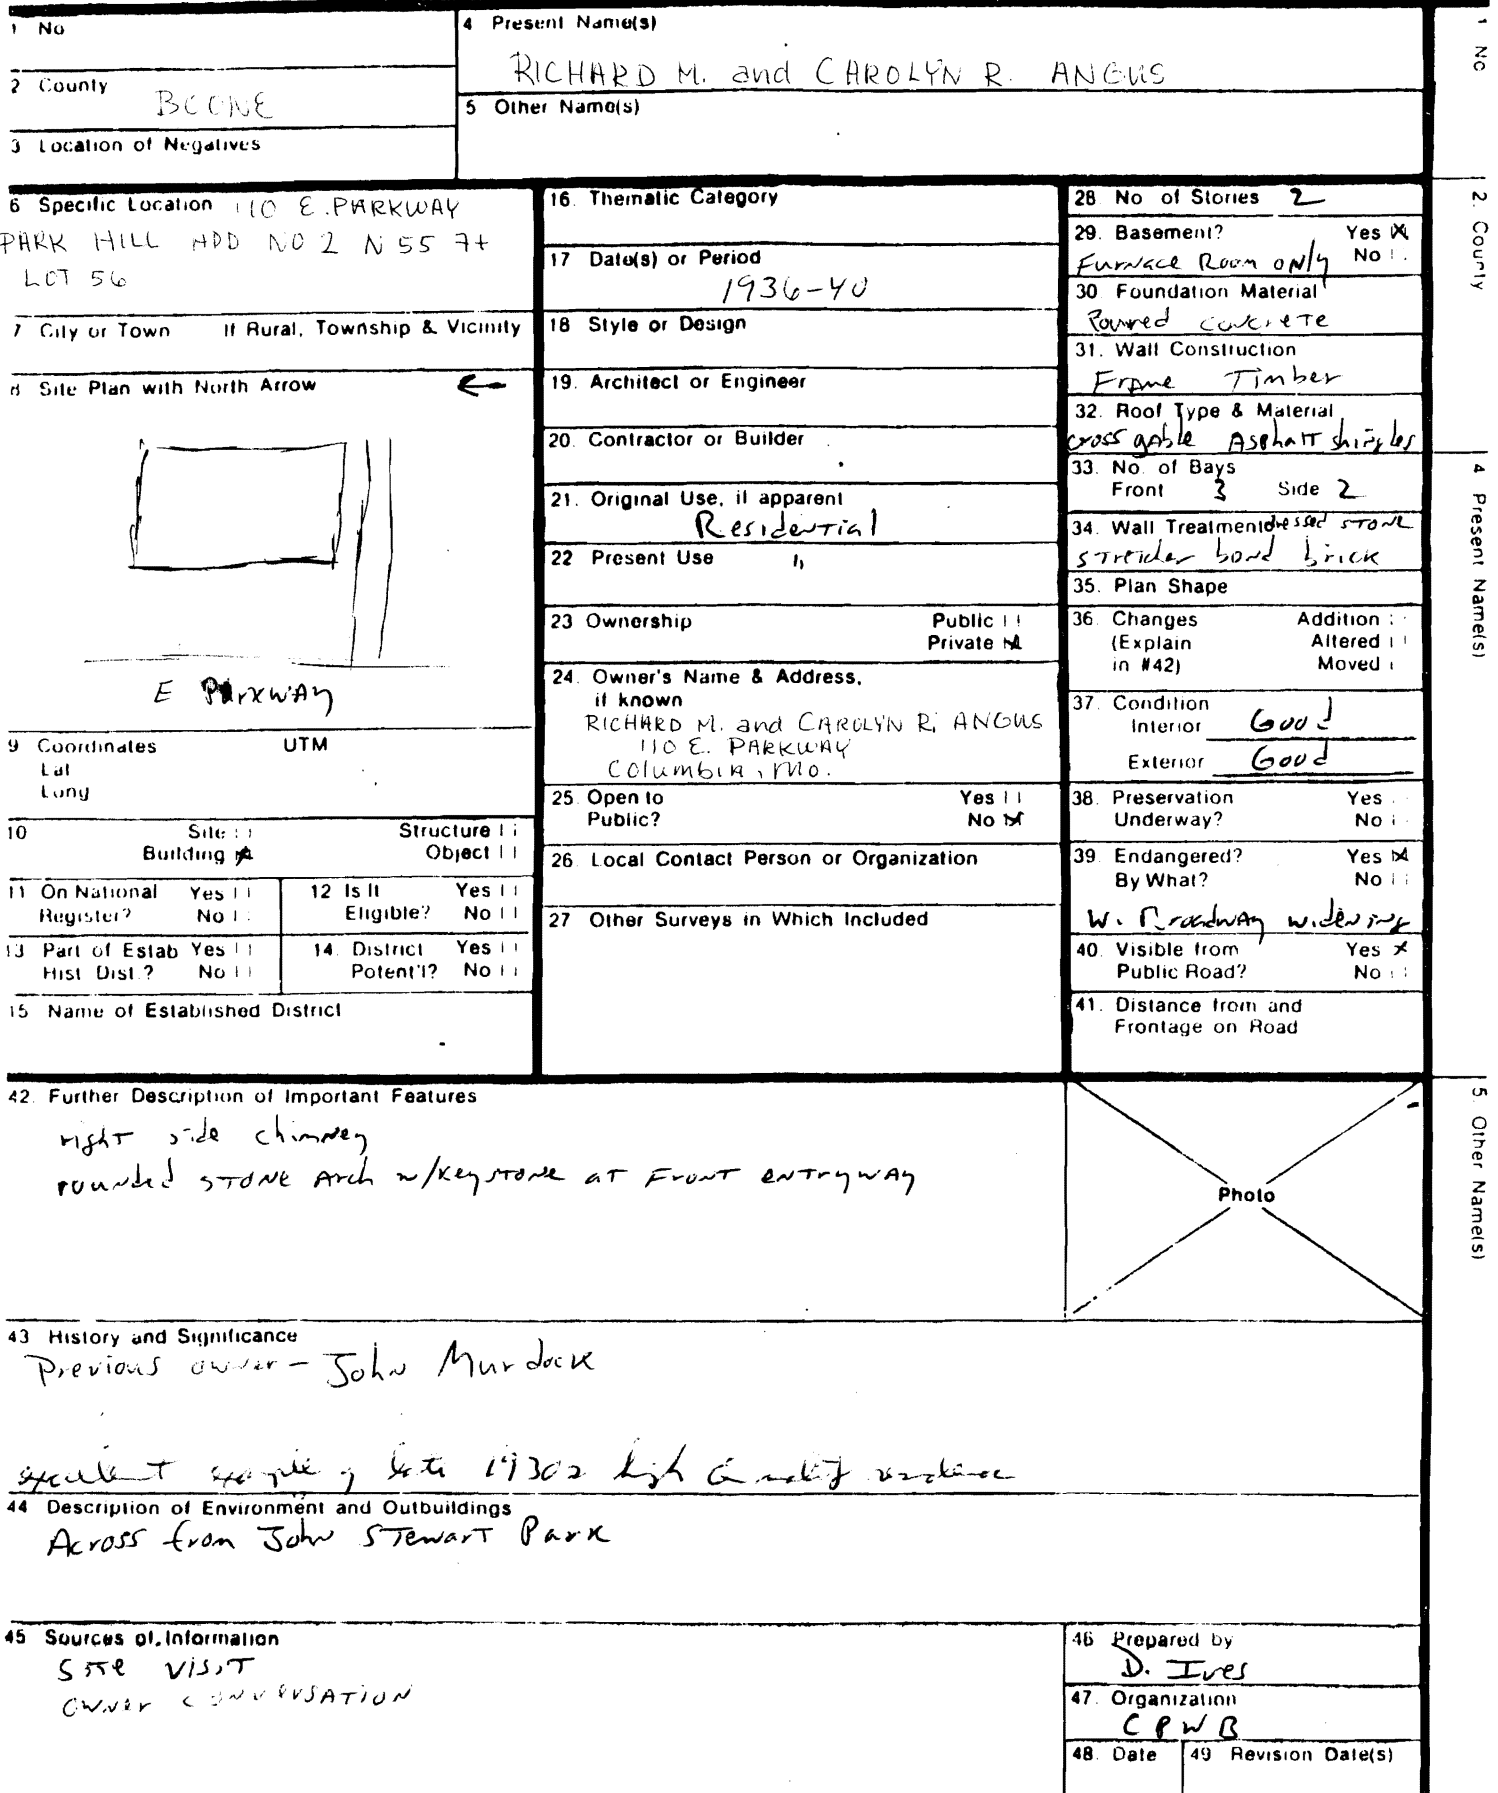 1 No
4 Present Name(s)
RICHARD M. and CAROLYN R. ANGUS
2 County
BOONE
5 Other Name(s)
3 Location of Negatives
6 Specific Location 110 E. PARKWAY
PARK HILL ADD NO 2 N 55 7+
LOT 56
7 City or Town If Rural, Township & Vicinity
8 Site Plan with North Arrow
E PARKWAY
9 Coordinates UTM
Lat
Long
10 Site Structure
Building Object
11 On National Register? Yes No
12 Is It Eligible? Yes No
13 Part of Estab Hist Dist.? Yes No
14. District Potent'l? Yes No
15 Name of Established District
16. Thematic Category
17 Date(s) or Period
1936-40
18 Style or Design
19. Architect or Engineer
20. Contractor or Builder
21. Original Use, if apparent
Residential
22 Present Use "
23 Ownership Public
Private X
24. Owner's Name & Address,
if known
RICHARD M. and CAROLYN R. ANGUS
110 E. PARKWAY
Columbia, Mo.
25. Open to Yes
Public? No X
26. Local Contact Person or Organization
27 Other Surveys in Which Included
28 No of Stories 2
29. Basement? Yes X
Furnace Room only No
30 Foundation Material
Poured concrete
31. Wall Construction
Frame Timber
32. Roof Type & Material
cross gable Asphalt shingles
33. No. of Bays
Front 3 Side 2
34. Wall Treatment dressed stone
stretcher bond brick
35. Plan Shape
36. Changes Addition
(Explain Altered
in #42) Moved
37. Condition
Interior Good
Exterior Good
38. Preservation Yes
Underway? No
39. Endangered? Yes X
By What? No
W. Broadway widening
40. Visible from Yes X
Public Road? No
41. Distance from and
Frontage on Road
42. Further Description of Important Features
right side chimney
rounded stone Arch w/keystone at Front entryway
Photo
43 History and Significance
Previous owner - John Murdock
excellent example of late 1930s high quality residence
44 Description of Environment and Outbuildings
Across from John Stewart Park
45 Sources of Information
Site visit
owner conversation
46 Prepared by
D. Ives
47. Organization
CPWB
48. Date 49 Revision Date(s)
1 No
2. County
4 Present Name(s)
5. Other Name(s)